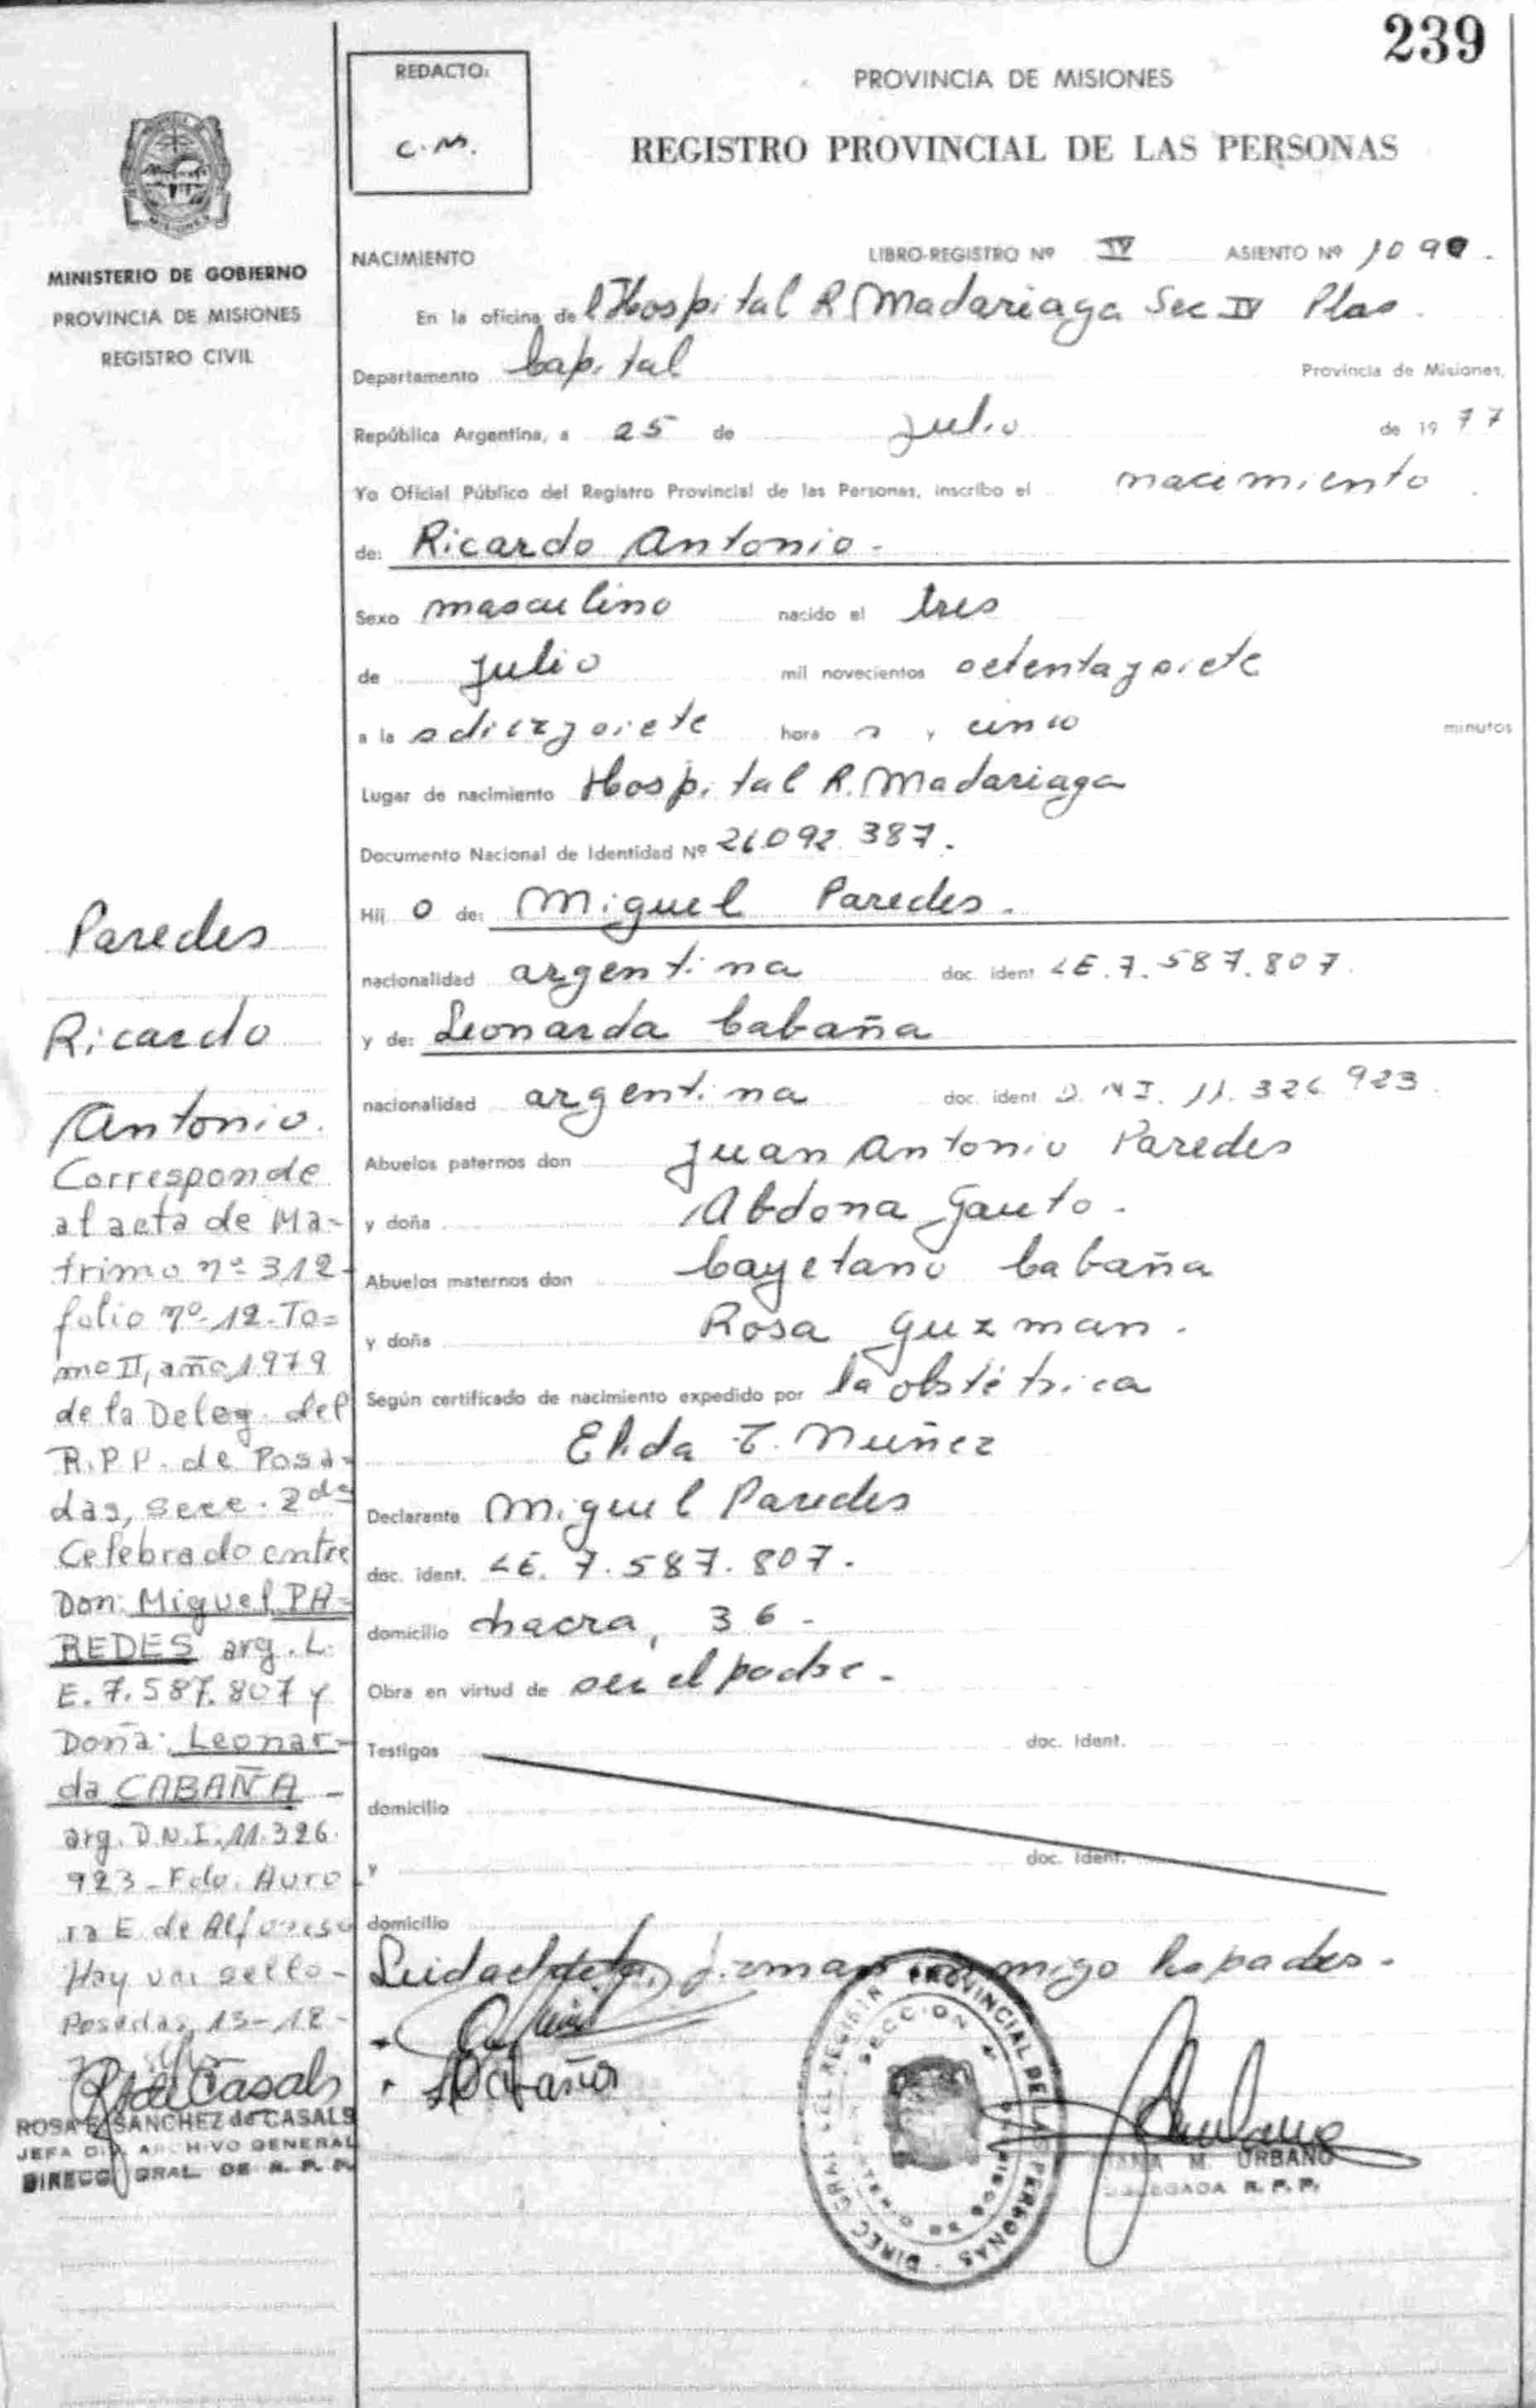 239
REDACTO:
C.M.
PROVINCIA DE MISIONES
REGISTRO PROVINCIAL DE LAS PERSONAS
MINISTERIO DE GOBIERNO
PROVINCIA DE MISIONES
REGISTRO CIVIL
NACIMIENTO LIBRO-REGISTRO Nº IV ASIENTO Nº
En la oficina del Hospital R. Madariaga Sec IV Pdas.
Departamento Capital Provincia de Misiones,
República Argentina, a 25 de Julio de 1977
Yo Oficial Público del Registro Provincial de las Personas, inscribo el nacimiento
de: Ricardo Antonio.-
Sexo masculino nacido el tres
de julio mil novecientos setentaysiete
a las diezysiete horas y cinco minutos
Lugar de nacimiento Hospital R. Madariaga
Documento Nacional de Identidad Nº 26.092.387.
Hijo de: Miguel Paredes.
nacionalidad argentina doc. ident. LE. 7.587.807.
y de: Leonarda Cabaña
nacionalidad argentina doc. ident. D.N.I. 11.326.923.
Abuelos paternos don Juan Antonio Paredes
y doña Abdona Gauto.
Abuelos maternos don Cayetano Cabaña
y doña Rosa Guzman.
Según certificado de nacimiento expedido por la obstétrica
Elida T. Nuñez
Declarante Miguel Paredes
doc. ident. LE. 7.587.807.
domicilio chacra, 36.
Obra en virtud de ser el padre.
Testigos doc. Ident.
domicilio
y doc. Ident.
domicilio
Leida el acta, firman conmigo los padres.
Cabaña
SECCION
PROVINCIAL DE LAS PERSONAS
M. URBANO
DELEGADA R. P. P.
Paredes
Ricardo
Antonio.
Corresponde
al acta de Ma-
trimo nº 312-
folio nº 12-To=
mo II, año 1979
de la Deleg. del
R.P.P. de Posa-
das, secc. 2da
Celebrado entre
Don: Miguel PA-
REDES arg. L.
E. 7.587.807 y
Doña: Leonar-
da CABAÑA -
arg. D.N.I. 11.326.
923- Fdo. Auro
ra E. de Alfonso
Hay un sello-
Posadas, 13-12-
R S de Casals
ROSA E. SANCHEZ de CASALS
JEFA DIV. ARCHIVO GENERAL
DIRECC. GRAL. DE R. P. P.